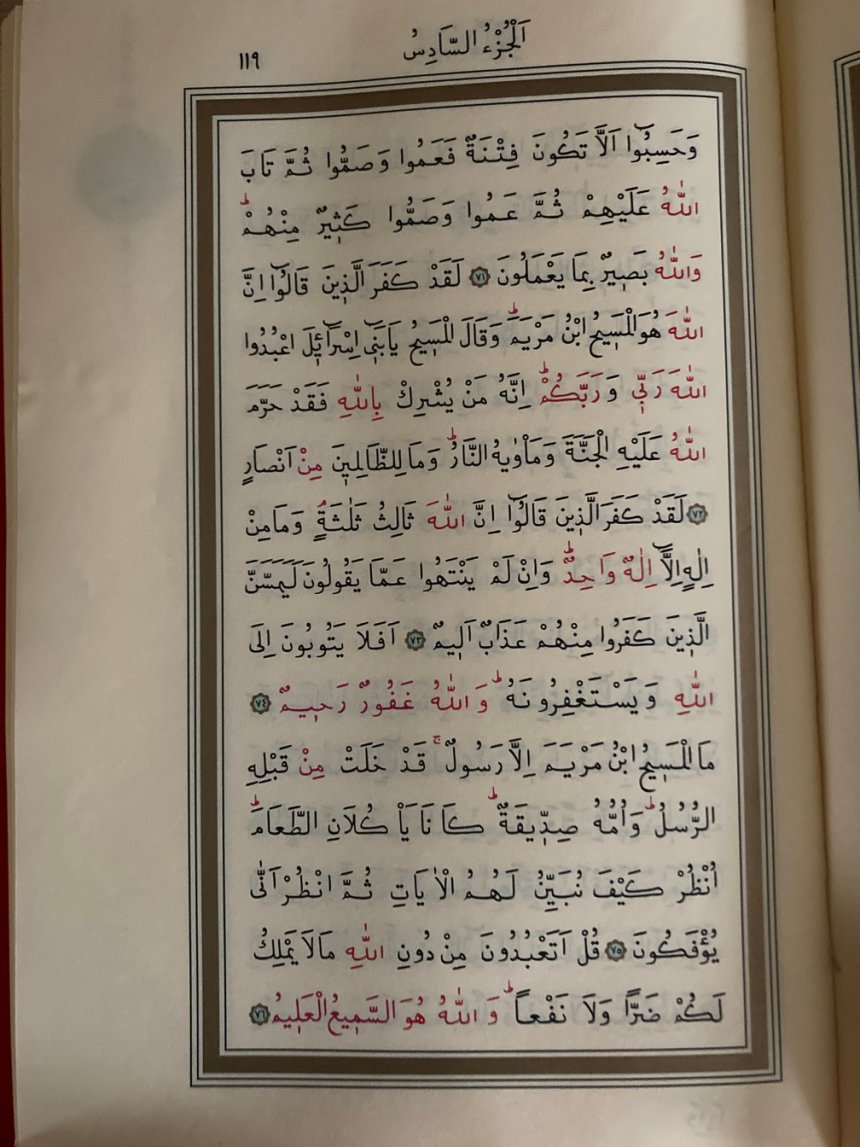 اَلْجُزْءُ السَّادِسُ
١١٩
وَحَسِبُٓوا اَلَّا تَكُونَ فِتْنَةٌ فَعَمُوا وَصَمُّوا ثُمَّ تَابَ
اللّٰهُ عَلَيْهِمْ ثُمَّ عَمُوا وَصَمُّوا كَث۪يرٌ مِنْهُمْۜ
وَاللّٰهُ بَص۪يرٌ بِمَا يَعْمَلُونَ ﴿٧١﴾ لَقَدْ كَفَرَ الَّذ۪ينَ قَالُٓوا اِنَّ
اللّٰهَ هُوَ الْمَس۪يحُ ابْنُ مَرْيَمَۜ وَقَالَ الْمَس۪يحُ يَابَن۪ٓي اِسْرَٓائ۪لَ اعْبُدُوا
اللّٰهَ رَبّ۪ي وَرَبَّكُمْۜ اِنَّهُ مَنْ يُشْرِكْ بِاللّٰهِ فَقَدْ حَرَّمَ
اللّٰهُ عَلَيْهِ الْجَنَّةَ وَمَأْوٰيهُ النَّارُۜ وَمَا لِلظَّالِم۪ينَ مِنْ اَنْصَارٍ
﴿٧٢﴾ لَقَدْ كَفَرَ الَّذ۪ينَ قَالُٓوا اِنَّ اللّٰهَ ثَالِثُ ثَلٰثَةٍۢ وَمَا مِنْ
اِلٰهٍ اِلَّٓا اِلٰهٌ وَاحِدٌۜ وَاِنْ لَمْ يَنْتَهُوا عَمَّا يَقُولُونَ لَيَمَسَّنَّ
الَّذ۪ينَ كَفَرُوا مِنْهُمْ عَذَابٌ اَل۪يمٌ ﴿٧٣﴾ اَفَلَا يَتُوبُونَ اِلَى
اللّٰهِ وَيَسْتَغْفِرُونَهُۜ وَاللّٰهُ غَفُورٌ رَح۪يمٌ ﴿٧٤﴾
مَا الْمَس۪يحُ ابْنُ مَرْيَمَ اِلَّا رَسُولٌۚ قَدْ خَلَتْ مِنْ قَبْلِهِ
الرُّسُلُۜ وَاُمُّهُ صِدّ۪يقَةٌۜ كَانَا يَأْكُلَانِ الطَّعَامَۜ
اُنْظُرْ كَيْفَ نُبَيِّنُ لَهُمُ الْاٰيَاتِ ثُمَّ انْظُرْ اَنّٰى
يُؤْفَكُونَ ﴿٧٥﴾ قُلْ اَتَعْبُدُونَ مِنْ دُونِ اللّٰهِ مَا لَا يَمْلِكُ
لَكُمْ ضَرًّا وَلَا نَفْعاًۜ وَاللّٰهُ هُوَ السَّم۪يعُ الْعَل۪يمُ ﴿٧٦﴾